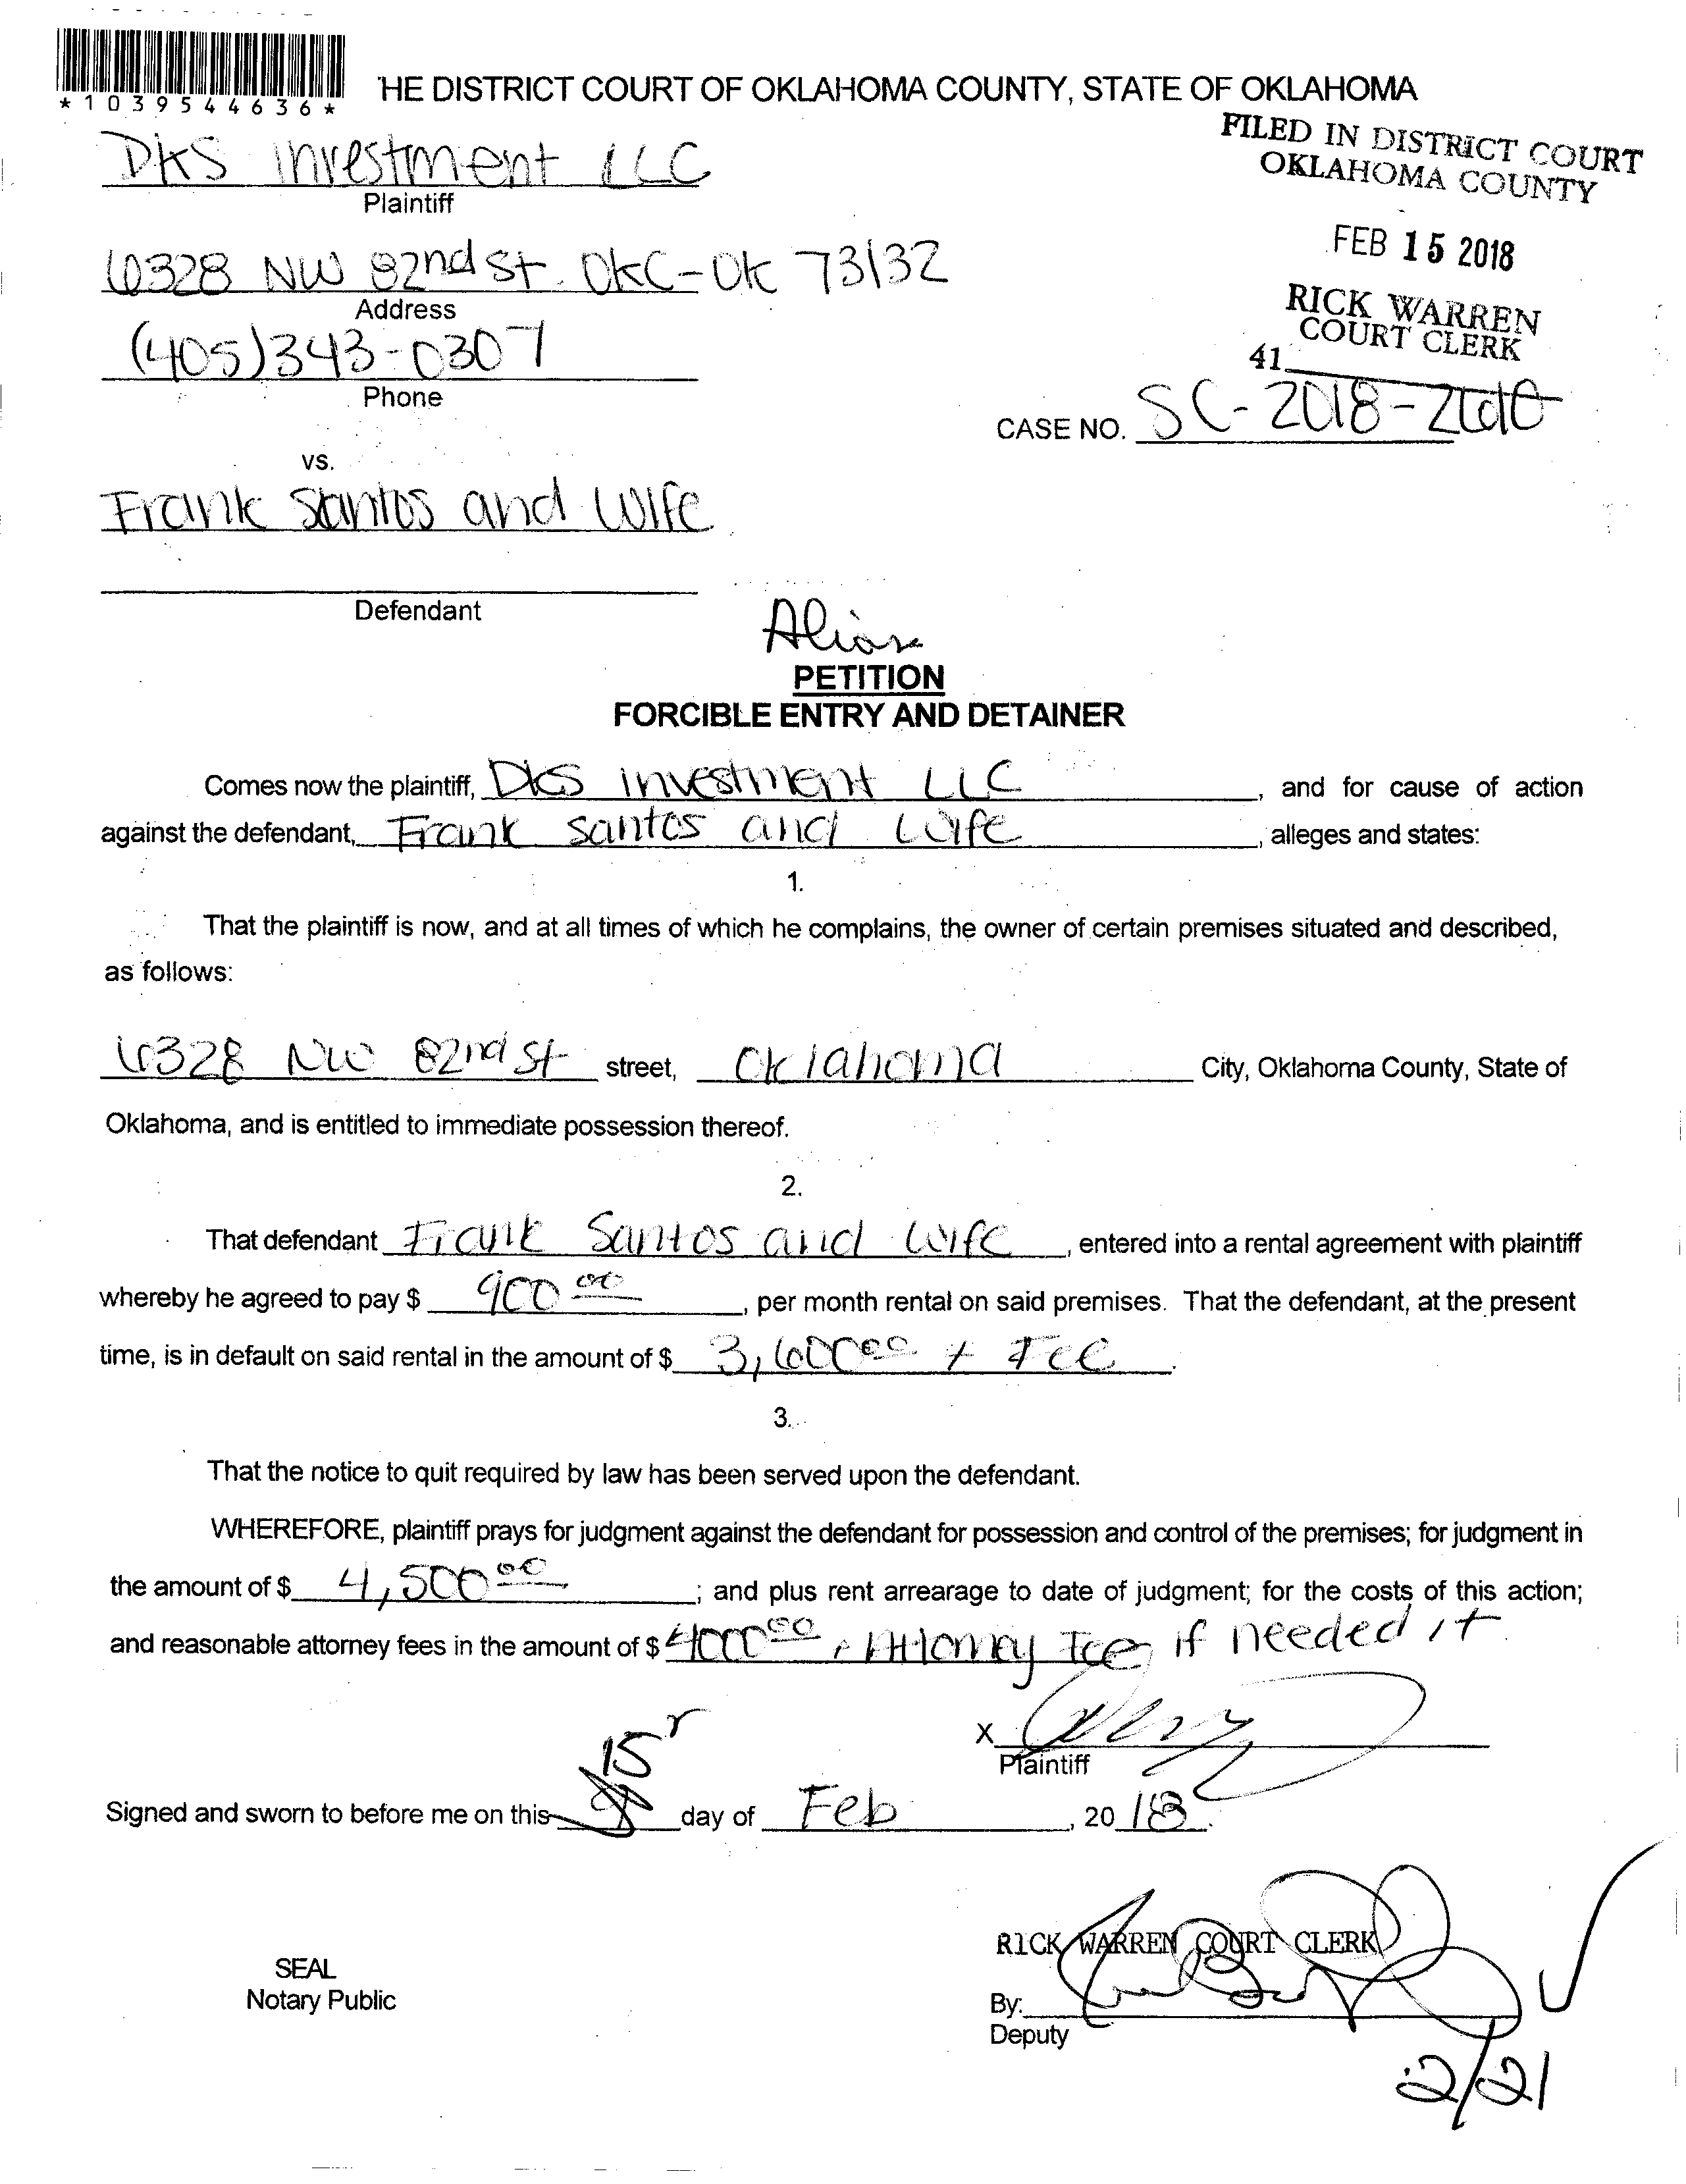 *1039544636*
HE DISTRICT COURT OF OKLAHOMA COUNTY, STATE OF OKLAHOMA
FILED IN DISTRICT COURT
OKLAHOMA COUNTY
DKS investment LLC
Plaintiff
FEB 15 2018
6328 NW 82nd St. OKC-OK 73132
Address
RICK WARREN
COURT CLERK
(405)343-0307
Phone
41
CASE NO. SC-2018-2610
vs.
Frank Santos and Wife
Defendant
Alias
PETITION
FORCIBLE ENTRY AND DETAINER
Comes now the plaintiff, DKS investment LLC, and for cause of action
against the defendant, Frank Santos and Wife, alleges and states:
1.
That the plaintiff is now, and at all times of which he complains, the owner of certain premises situated and described,
as follows:
6328 NW 82nd St street, Oklahoma City, Oklahoma County, State of
Oklahoma, and is entitled to immediate possession thereof.
2.
That defendant Frank Santos and Wife, entered into a rental agreement with plaintiff
whereby he agreed to pay $ 900 00, per month rental on said premises. That the defendant, at the present
time, is in default on said rental in the amount of $ 3,600 00 + Fee.
3.
That the notice to quit required by law has been served upon the defendant.
WHEREFORE, plaintiff prays for judgment against the defendant for possession and control of the premises; for judgment in
the amount of $ 4,500 00; and plus rent arrearage to date of judgment; for the costs of this action;
and reasonable attorney fees in the amount of $ 4000 00 + Attorney Fee, if needed it
X
Plaintiff
15
Signed and sworn to before me on this day of Feb, 20 18.
RICK WARREN COURT CLERK
SEAL
Notary Public
By:
Deputy
2/21